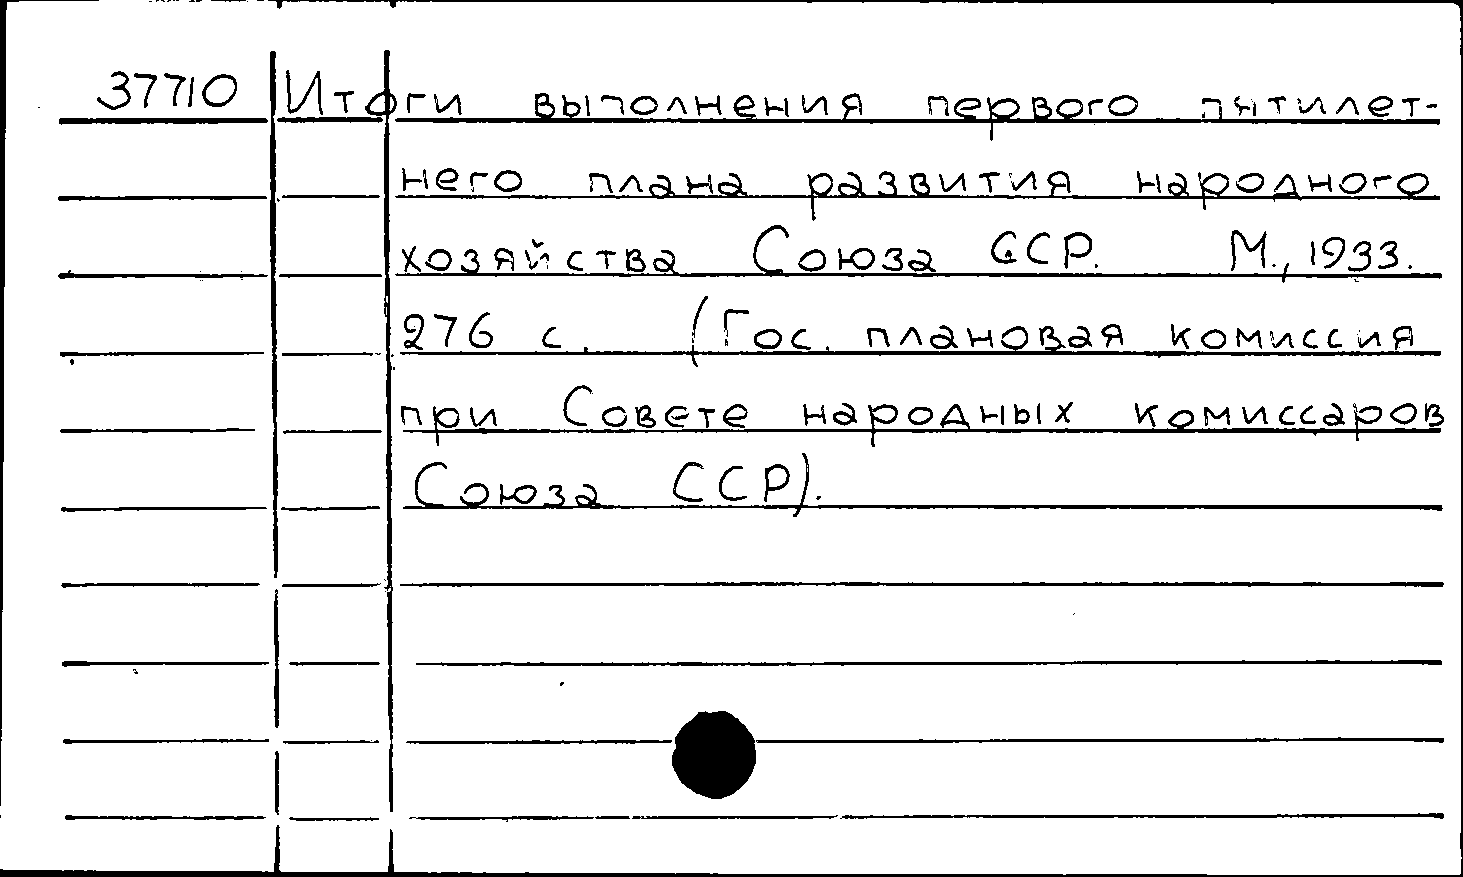 37710 Итоги выполнения первого пятилет-
него плана развития народного
хозяйства Союза ССР. М., 1933.
276 с. (Гос. плановая комиссия
при Совете народных комиссаров
Союза ССР).